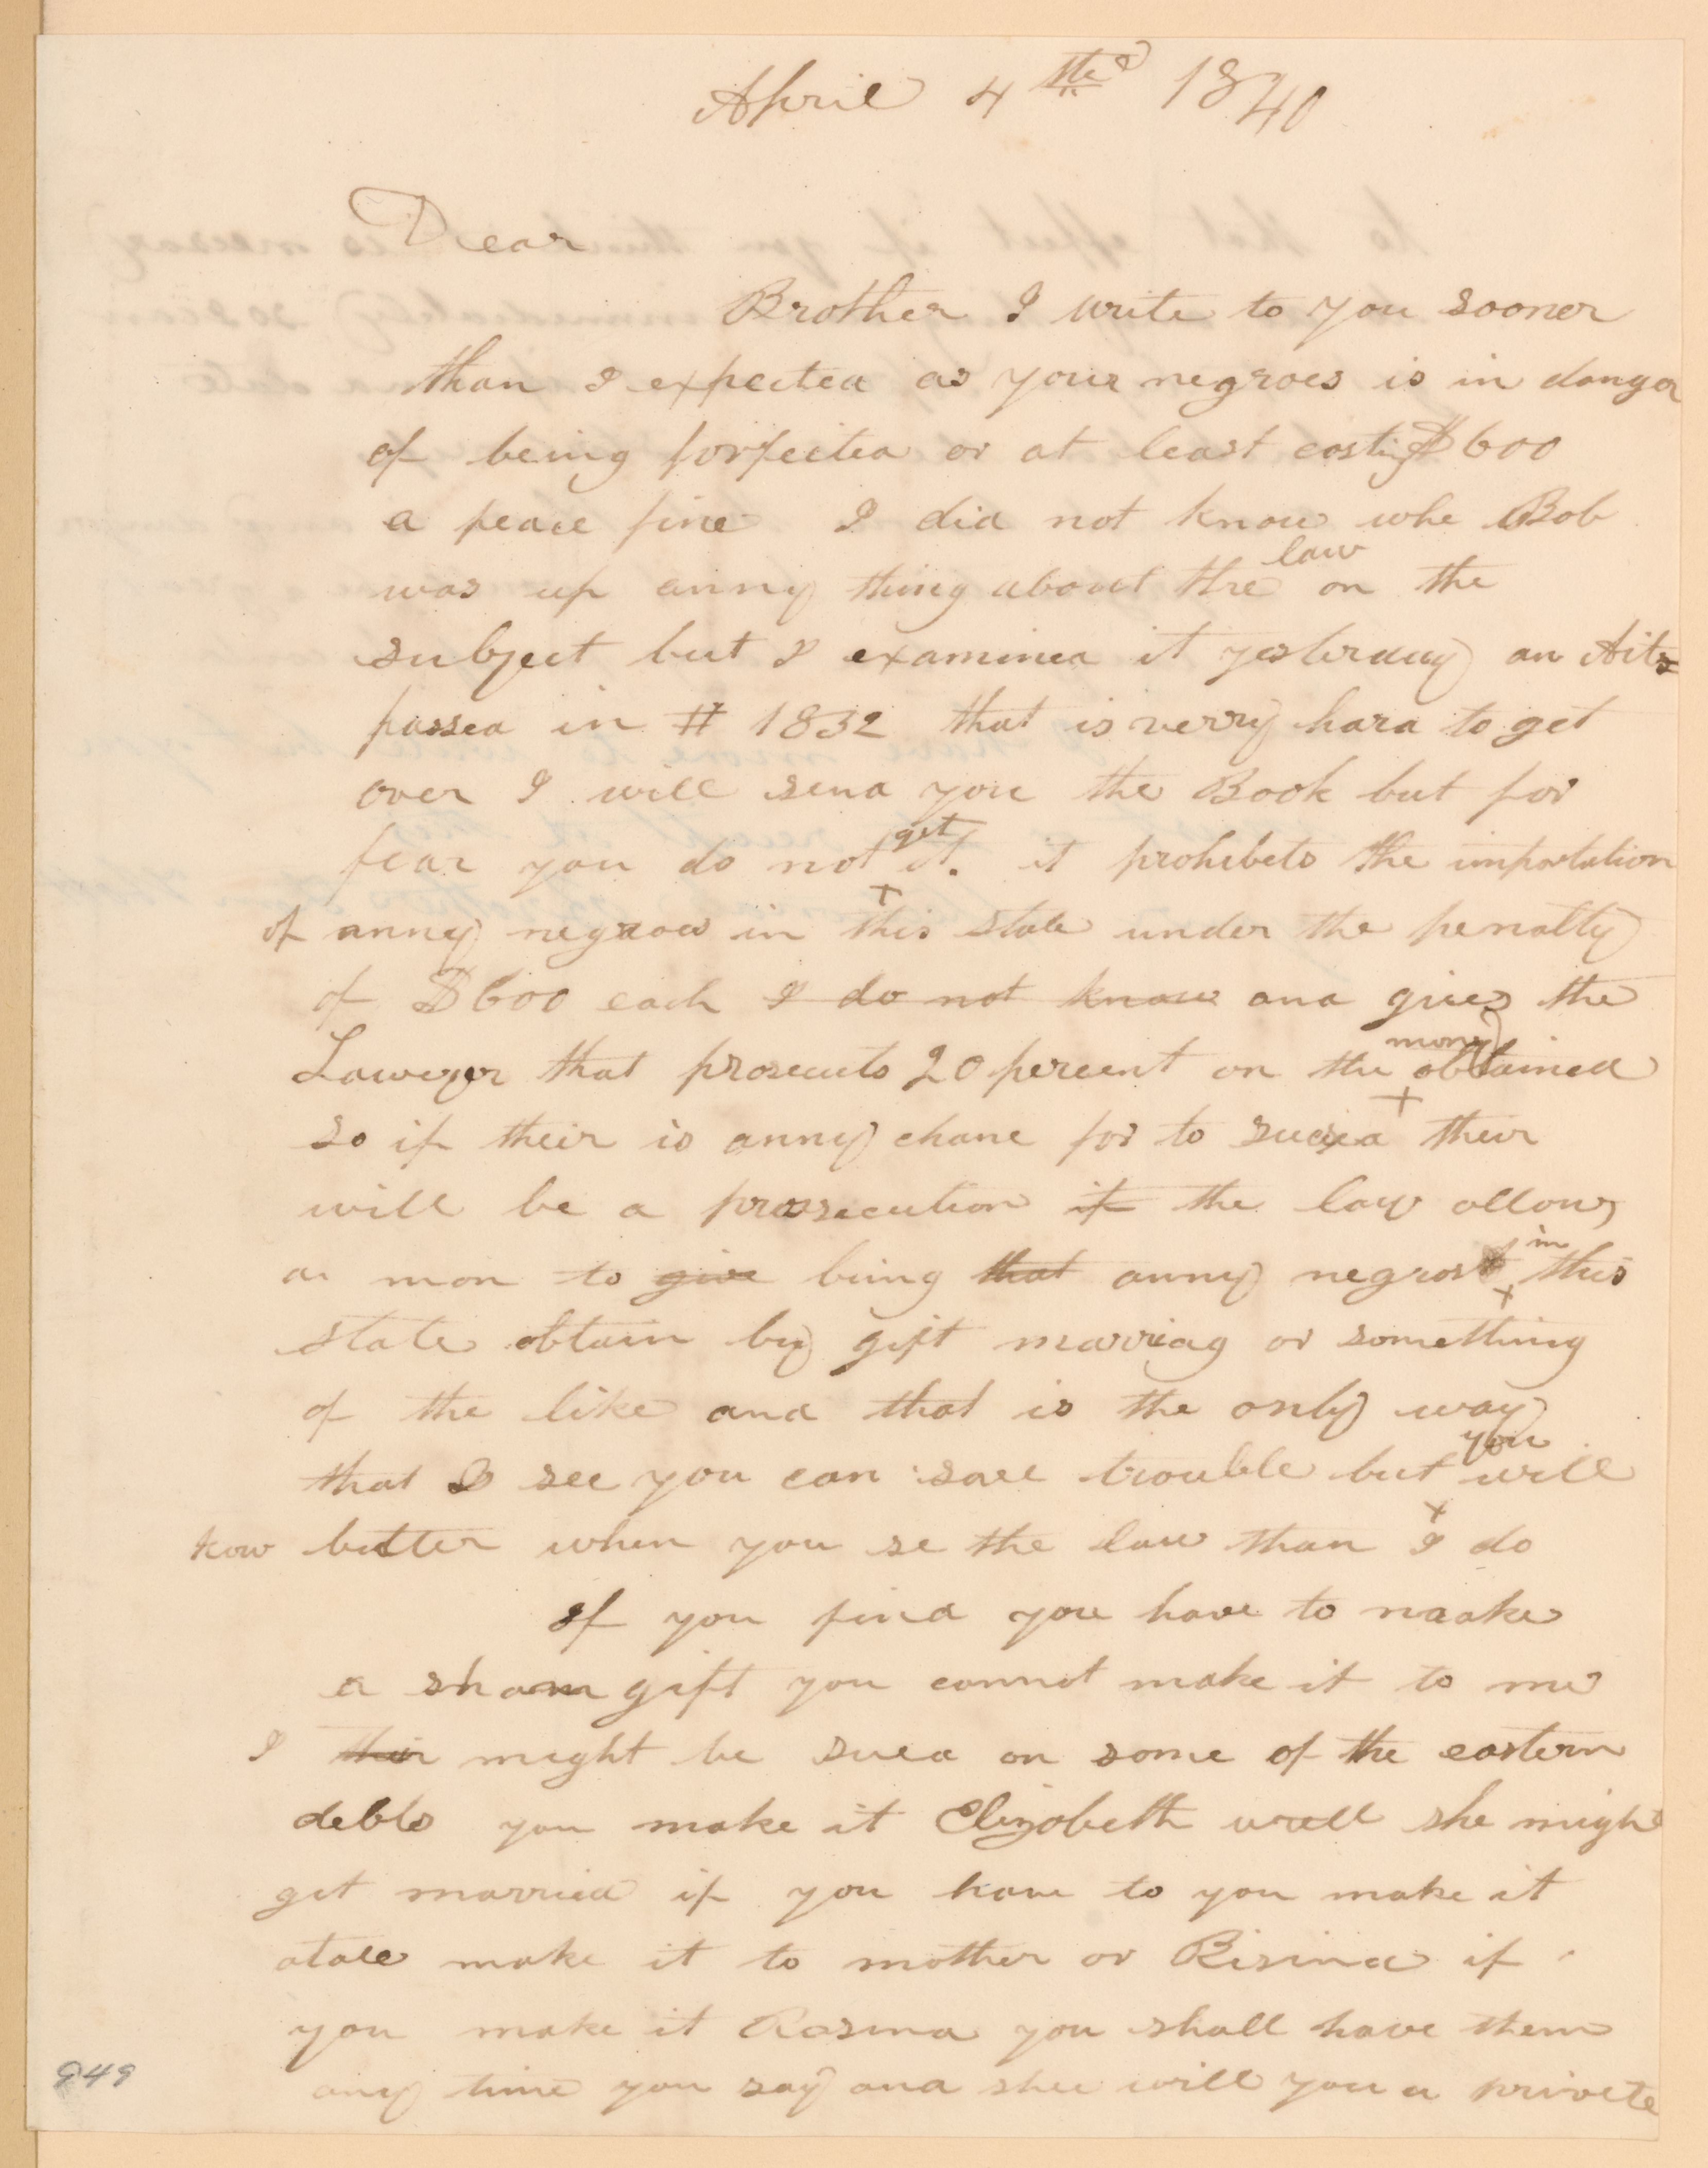 April 4th 1840
Dear
Brother I write to you sooner
than I expected as your negroes is in danger
of being forfeited or at least costing $600
a peace fine I did not know whe Bob
was up anny thing about the law on the
subject but I examined it yesterday an
passed in # 1832 that is verry hard to get
over I will send you the Book but for
fear you do not get it. it prohibets the
of anny negroes in this state under the penalty
of $600 each I do not know and gives the
Laweyer that prosecuts 20 percent on the money obtained
so if their is anny chane for to their
will be a prosecution if the law allows
a man to give bring that anny negros in this
state obtain by gift marriag or something
of the like and that is the only way
that I see you can save trouble but you will
know better when you se the law than I do
If you find you have to make
a sham gift you cannot make it to me
I their might be sued on some of the eastern
debts you make it Elizabeth well she might
get married if you have to you make it
atall make it to mother or Risina if
you make it Rosina you shall have them
any time you say and shee will you a privete
949